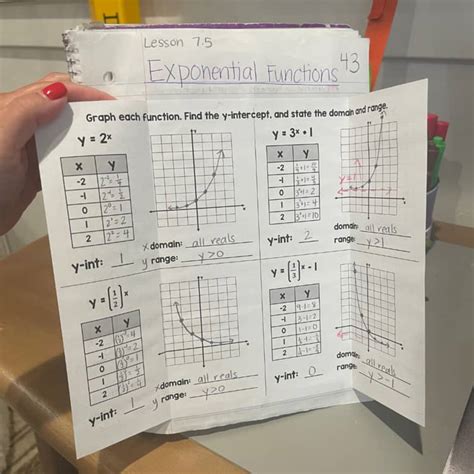 Lesson 7.5
Exponential Functions
43
Graph each function. Find the y-intercept, and state the domain and range.
y = 2ˣ
x y
-2
-1
0 2⁰ = 1
1 2¹ = 2
2 2² = 4
y-int: 1
x domain: all reals
y range: y>0
y = 3ˣ + 1
x y
-2
-1
0 3⁰+1 = 2
1 3¹+1 = 4
2 3²+1 = 10
y-int: 2
domain: all reals
range: y>1
y=1
y = (1/2)ˣ
x y
-2
-1
0
1
2
y-int: 1
x domain: all reals
y range: y>0
y = (1/3)ˣ - 1
x y
-2 9-1 = 8
-1 3-1=2
0 1-1=0
1
2
y-int: 0
domain: all reals
range: y>-1